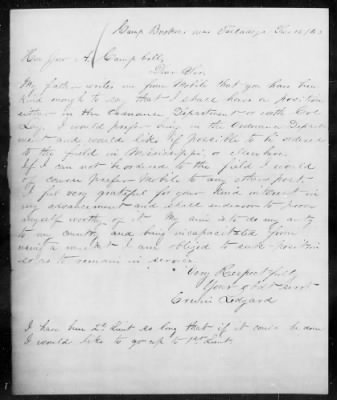 Camp Brookes near Talladega
Hon Jno A. Campbell
Dear Sir
My father writes me from Mobile that you have been
kind enough to say that I shall have a position
either in the Ordnance Department or with Col
I would prefer being in the Ordnance Depart-
ment and would like if possible to be ordered
to the field in Mississippi or elsewhere
If I can not be ordered to the field I would
of course prefer Mobile to any other post.
I feel very grateful for your kind interest in
my advancement and shall endeavor to prove
myself worthy of it. My aim is to do my duty
to my country and being incapacitated from
I am obliged to seek position
so as to remain in service
Very Respectfully
Your obdt servt
Erwin Ledyard
I have been 2d Lieut so long that if it can be done
I would like to go up to 1st Lieut.